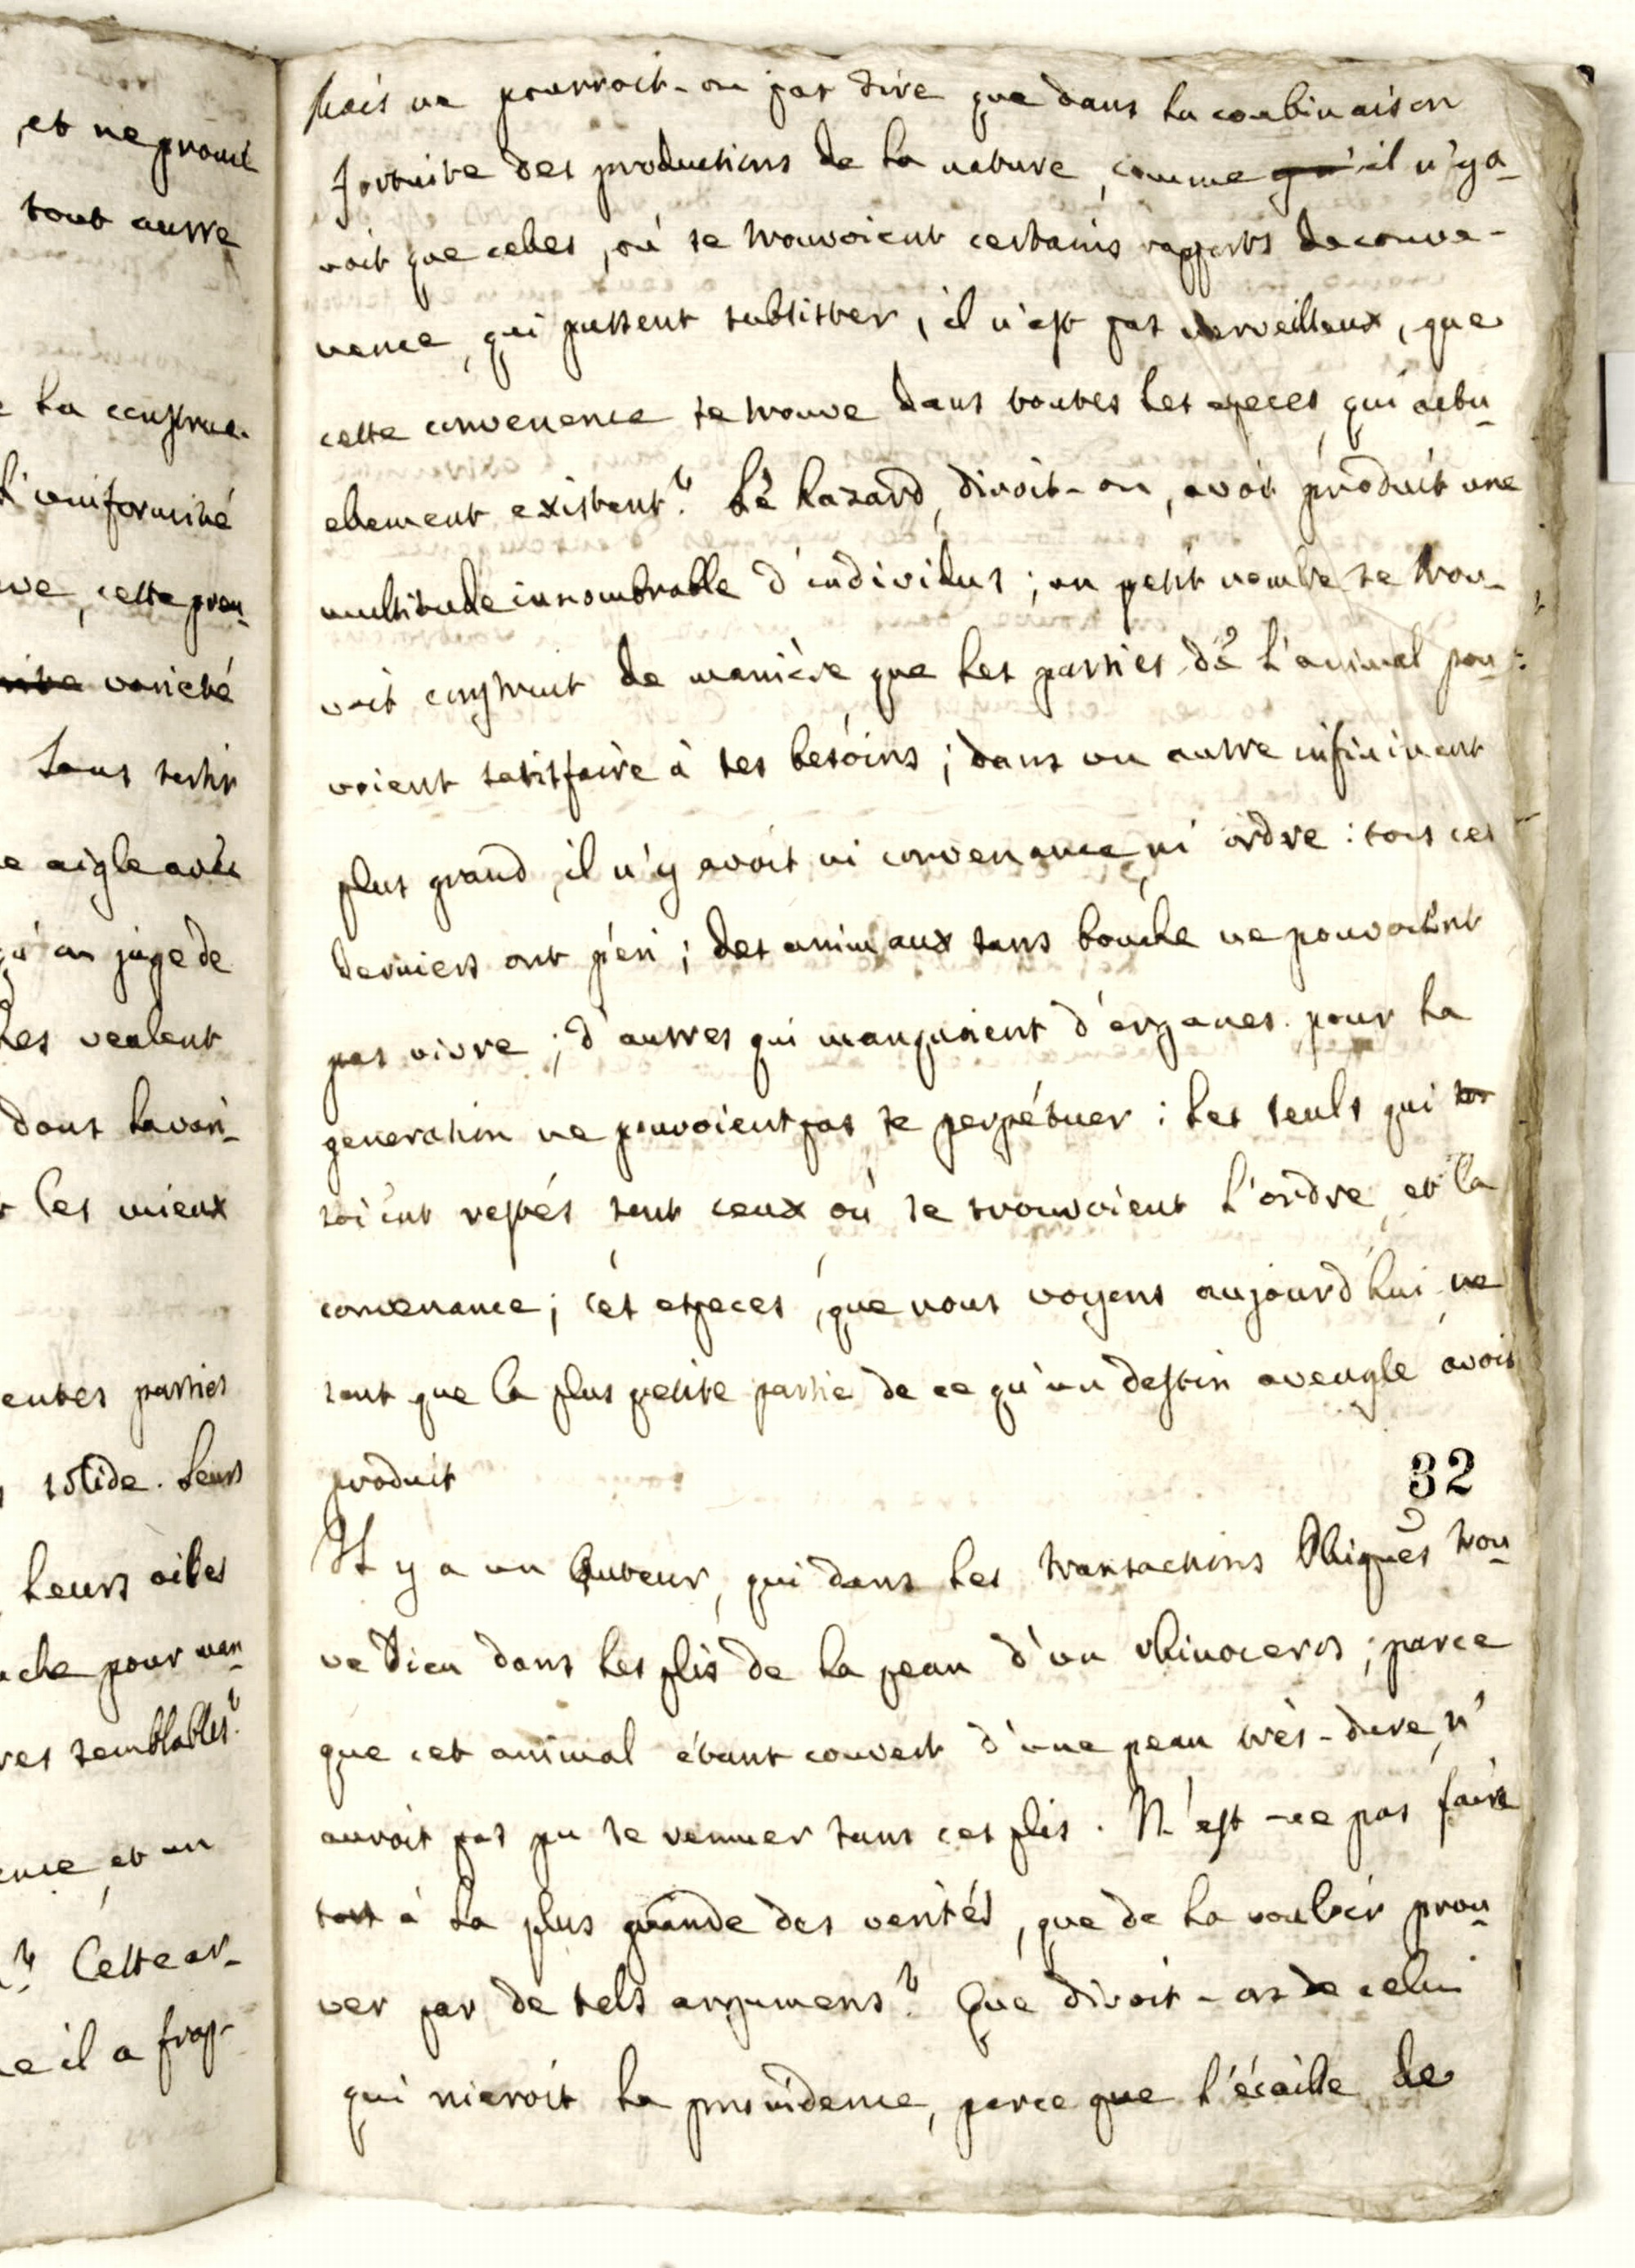 et ne prouve
tout autre
la construc-
l'uniformité
cette preu-
variété
Sans sortir
aigle avec
qu'on juge de
veulent
dans la vari-
les mieux
entes parties
solide. leurs
leurs ailes
pour man-
res semblables?
et un
Cette ar-
il a frap-
Mais ne pourroit-on pas dire que dans la combinaison
fortuite des productions de la nature, comme qu'il n'y a-
voit que celles, où se trouvoient certains rapports de conve-
nence, qui pussent subsister, il n'est pas merveilleux, que
cette convenence se trouve dans toutes les especes, qui actu-
ellement existent? Le hazard, diroit-on, avoit produit une
multitude innombrable d'individus; un petit nombre se trou-
voit construit de manière que les parties de l'animal pou-
voient satisfaire à ses besoins; dans un autre infiniment
plus grand, il n'y avoit ni convenance, ni ordre: tous ces
derniers ont péri; des animaux sans bouche ne pouvoient
pas vivre; d'autres qui manquoient d'organes pour la
generation ne pouvoient pas se perpétuer: les seuls qui
soient restés sont ceux où se trouvoient l'ordre et la
convenance; ces especes, que nous voyons aujourd'hui ne
sont que la plus petite partie de ce qu'un destin aveugle avoit
produit
32
Il y a un Auteur, qui dans les transactions Phiques trou-
ve Dieu dans les plis de la peau d'un rhinoceros; parce
que cet animal étant couvert d'une peau très-dure, n'
auroit pas pu se remuer sans ces plis. N'est-ce pas faire
tort à la plus grande des verités, que de la vouloir prou-
ver par de tels argumens? Que diroit-on de celui
qui nieroit la providence, parce que l'écaille de